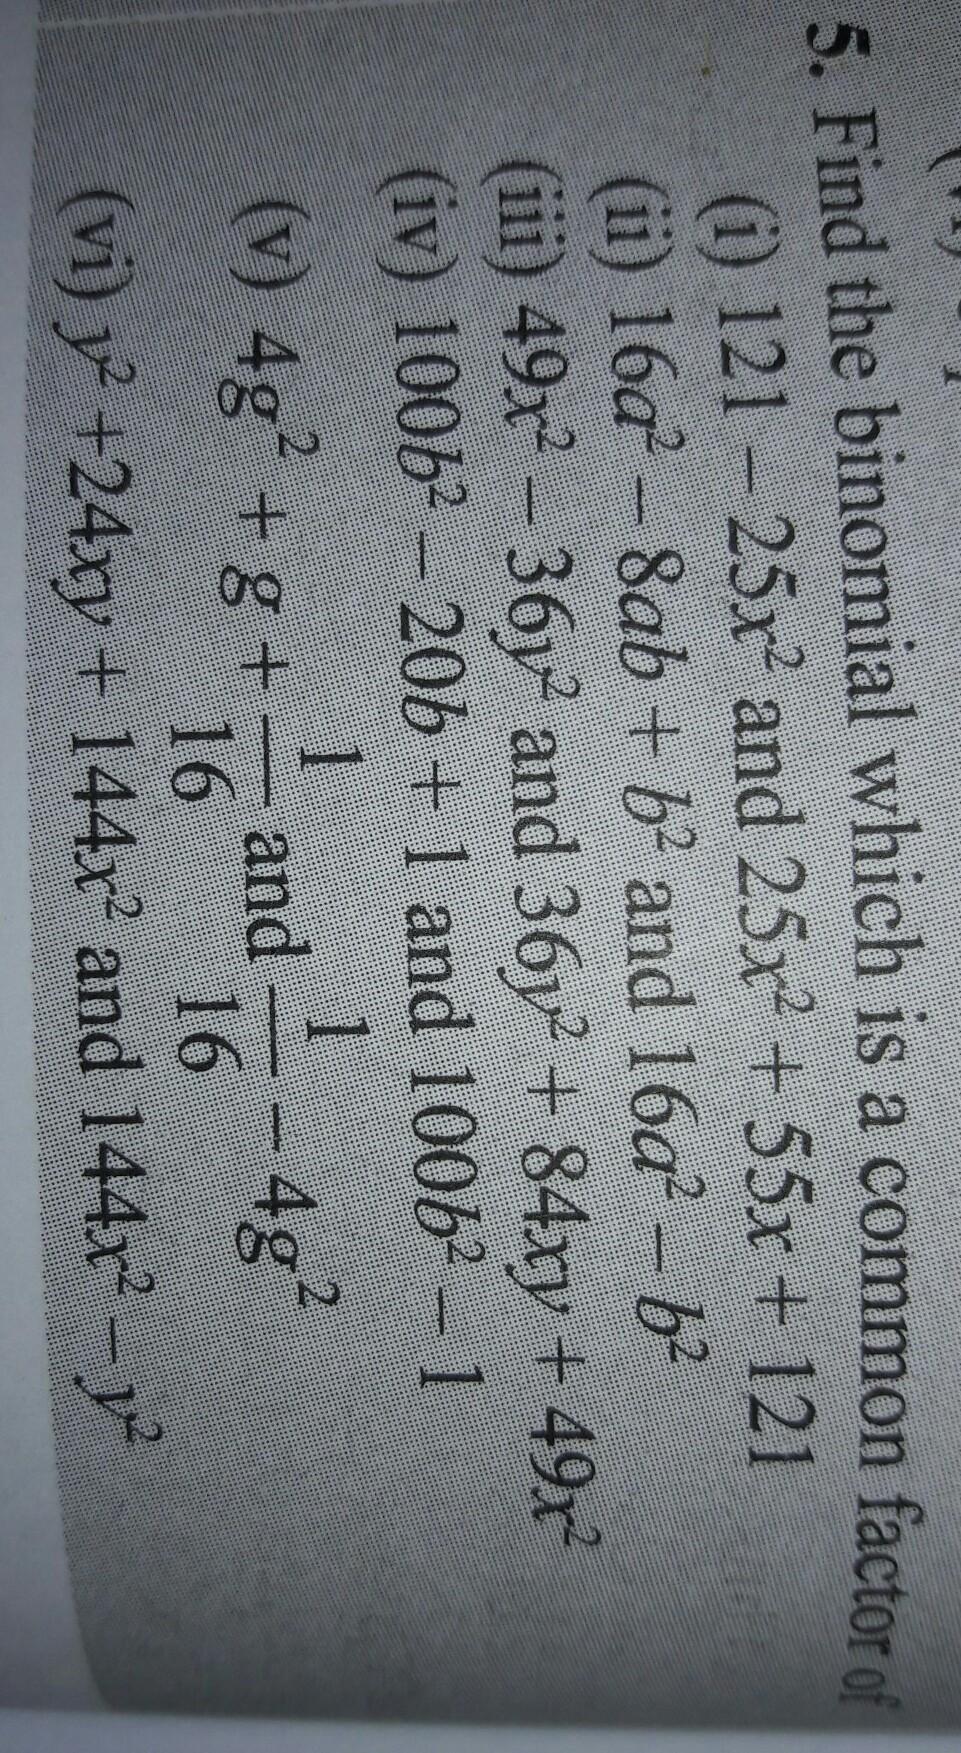 5. Find the binomial which is a common factor of
(i) 121 − 25x² and 25x² + 55x + 121
(ii) 16a² − 8ab + b² and 16a² − b²
(iii) 49x² − 36y² and 36y² + 84xy + 49x²
(iv) 100b² − 20b + 1 and 100b² − 1
(v) 4g² + g + 1/16 and 1/16 − 4g²
(vi) y² + 24xy + 144x² and 144x² − y²